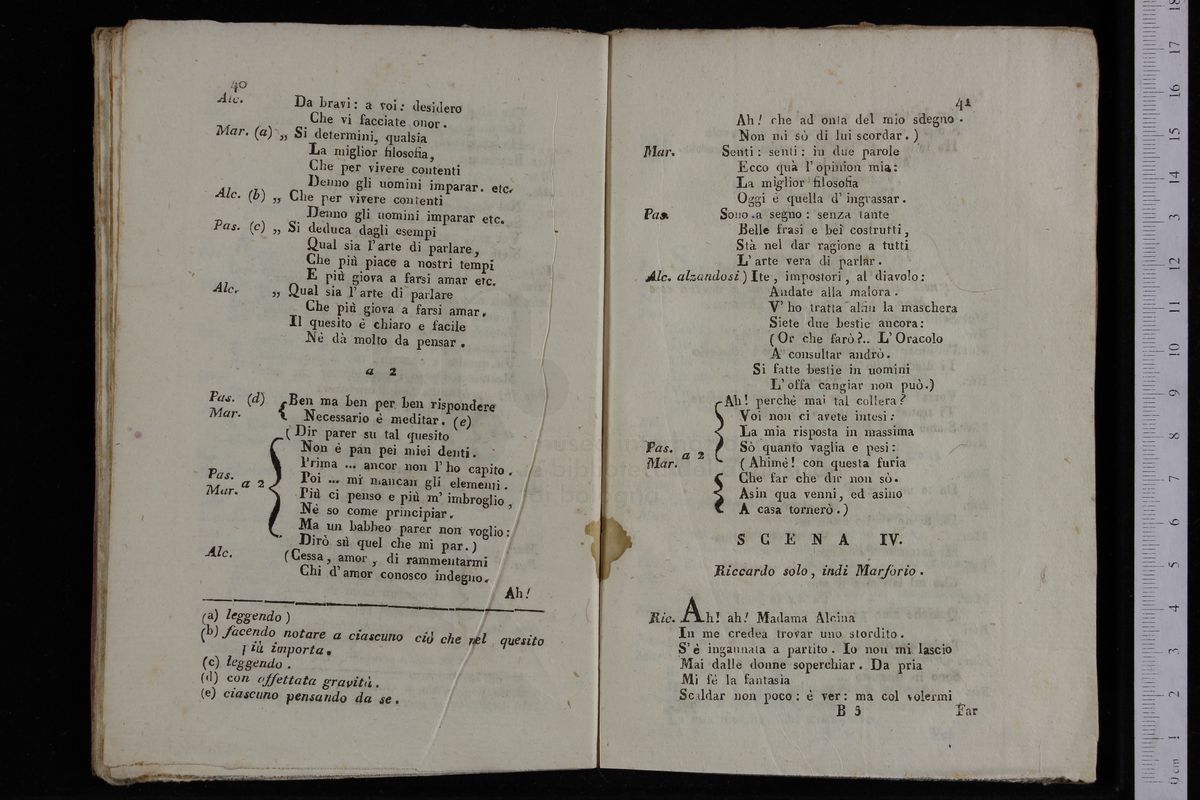 40
Alc. Da bravi: a voi: desidero
Che vi facciate onor.
Mar. (a) „ Si determini, qualsia
La miglior filosofia,
Che per vivere contenti
Denno gli uomini imparar. etc.
Alc. (b) „ Che per vivere contenti
Denno gli uomini imparar etc.
Pas. (c) „ Si deduca dagli esempi
Qual sia l'arte di parlare,
Che più piace a nostri tempi
E più giova a farsi amar etc.
Alc. „ Qual sia l'arte di parlare
Che più giova a farsi amar.
Il quesito è chiaro e facile
Nè dà molto da pensar.
a 2
Pas. (d) Ben ma ben per ben rispondere
Mar. Necessario è meditar. (e)
(Dir parer su tal quesito
Non è pan pei miei denti.
Prima ... ancor non l'ho capito.
Pas. Poi ... mi mancan gli elementi.
Mar. a 2 Più ci penso e più m'imbroglio,
Nè so come principiar.
Ma un babbeo parer non voglio:
Dirò sù quel che mi par.)
Alc. (Cessa, amor, di rammentarmi
Chi d'amor conosco indegno.
Ah!
(a) leggendo)
(b) facendo notare a ciascuno ciò che nel quesito
più importa.
(c) leggendo.
(d) con affettata gravità.
(e) ciascuno pensando da se.
41
Ah! che ad onta del mio sdegno
Non mi sò di lui scordar.)
Mar. Senti: senti: in due parole
Ecco quà l'opinion mia:
La miglior filosofia
Oggi è quella d'ingrassar.
Pas. Sono a segno: senza tante
Belle frasi e bei costrutti,
Stà nel dar ragione a tutti
L'arte vera di parlar.
Alc. alzandosi) Ite, impostori, al diavolo:
Andate alla malora.
V'ho tratta alfin la maschera
Siete due bestie ancora:
(Or che farò?.. L'Oracolo
A consultar andrò.
Si fatte bestie in uomini
L'offa cangiar non può.)
Ah! perchè mai tal collera?
Voi non ci avete intesi:
La mia risposta in massima
Pas. Sò quanto vaglia e pesi:
Mar. a 2 (Ahimè! con questa furia
Che far che dir non sò.
Asin qua venni, ed asino
A casa tornerò.)
SCENA IV.
Riccardo solo, indi Marforio.
Ric. Ah! ah! Madama Alcina
In me credea trovar uno stordito.
S'è ingannata a partito. Io non mi lascio
Mai dalle donne soperchiar. Da pria
Mi fè la fantasia
Scaldar non poco: è ver: ma col volermi
B 5 Far